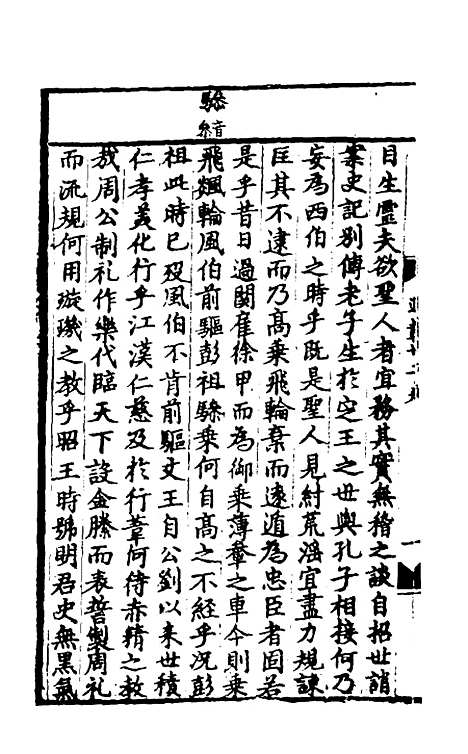 驂
目生靈夫欲聖人者宜務其實無稽之談自招世誚
案史記別傳老子生於定王之世與孔子相接何乃
妄為西伯之時乎既是聖人見紂荒淫宜盡力規諫
匡其不逮而乃高乗飛輪棄而逺遁為忠臣者固若
是乎昔日過關雇徐甲而為御乗薄軬之車今則乗
飛飊輪風伯前驅彭祖驂乗何自高之不經乎况彭
祖此時已殁風伯不肯前驅文王自公劉以来世積
仁孝美化行乎江漢仁慈及於行葦何待赤精之教
㢤周公制礼作樂代臨天下設金縢而表誓製周礼
而流規何用璇璣之教乎昭王時號明君史無黒氣